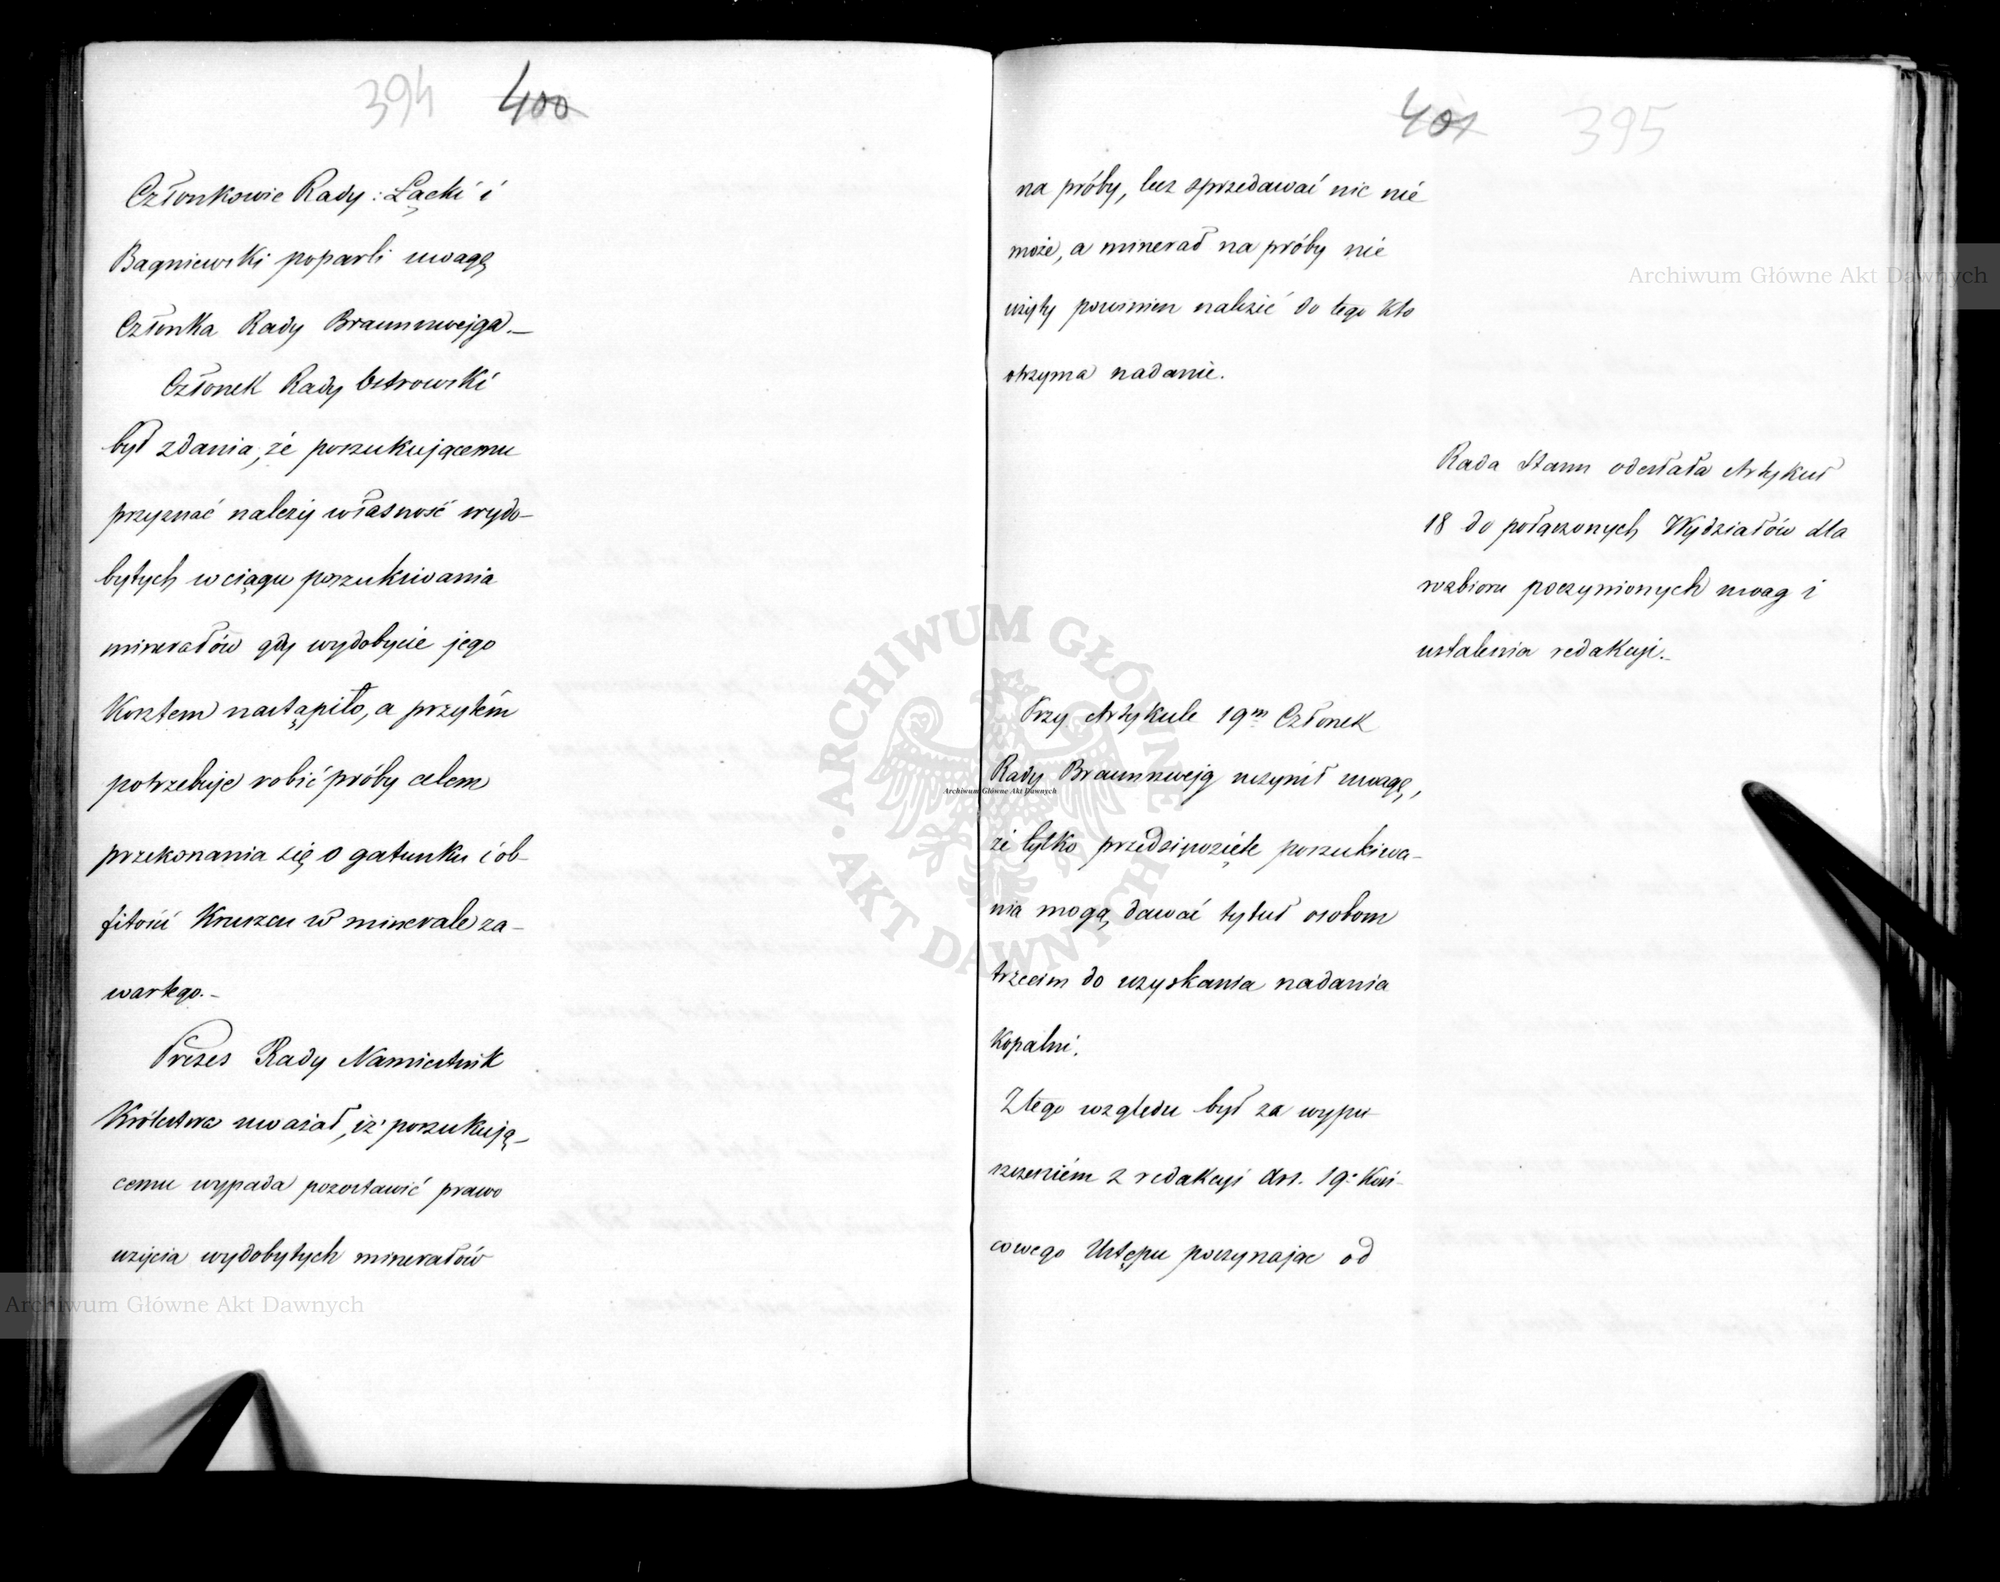 394 400
Członkowie Rady: Łącki i
Bagniewski poparli uwagę
Członka Rady Braunnwejga.—
Członek Rady Ostrowski
był zdania, że poszukującemu
przyznać należy własność wydo-
bytych w ciągu poszukiwania
minerałów gdy wydobycie jego
Kosztem nastąpiło, a przytém
potrzebuje robić próby celem
przekonania się o gatunku i ob-
fitości Kruszcu w minerale za-
wartego.—
Prezes Rady Namiestnik
Królestwa uważał, iż poszukują-
cemu wypada pozostawić prawo
użycia wydobytych minerałów
401 395
na próby, lecz sprzedawać nic nie
może, a minerał na próby nie
użyty powinien należić do tego kto
otrzyma nadanie.
Rada Stanu odesłała Artykuł
18 do połączonych Wydziałów dla
rozbioru poczynionych uwag i
ustalenia redakcyi.—
Przy Artykule 19m Członek
Rady Braunnwejg uczynił uwagę,
że tylko przedsięwzięte poszukiwa-
nia mogą dawać tytuł osobom
trzecim do uzyskania nadania
Kopalni.
Z tego względu był za wypu-
szczeniém z redakcyi Art. 19o Koń-
cowego Ustępu poczynając od
Archiwum Główne Akt Dawnych
Archiwum Główne Akt Dawnych
Archiwum Główne Akt Dawnych
ARCHIWUM GŁÓWNE AKT DAWNYCH